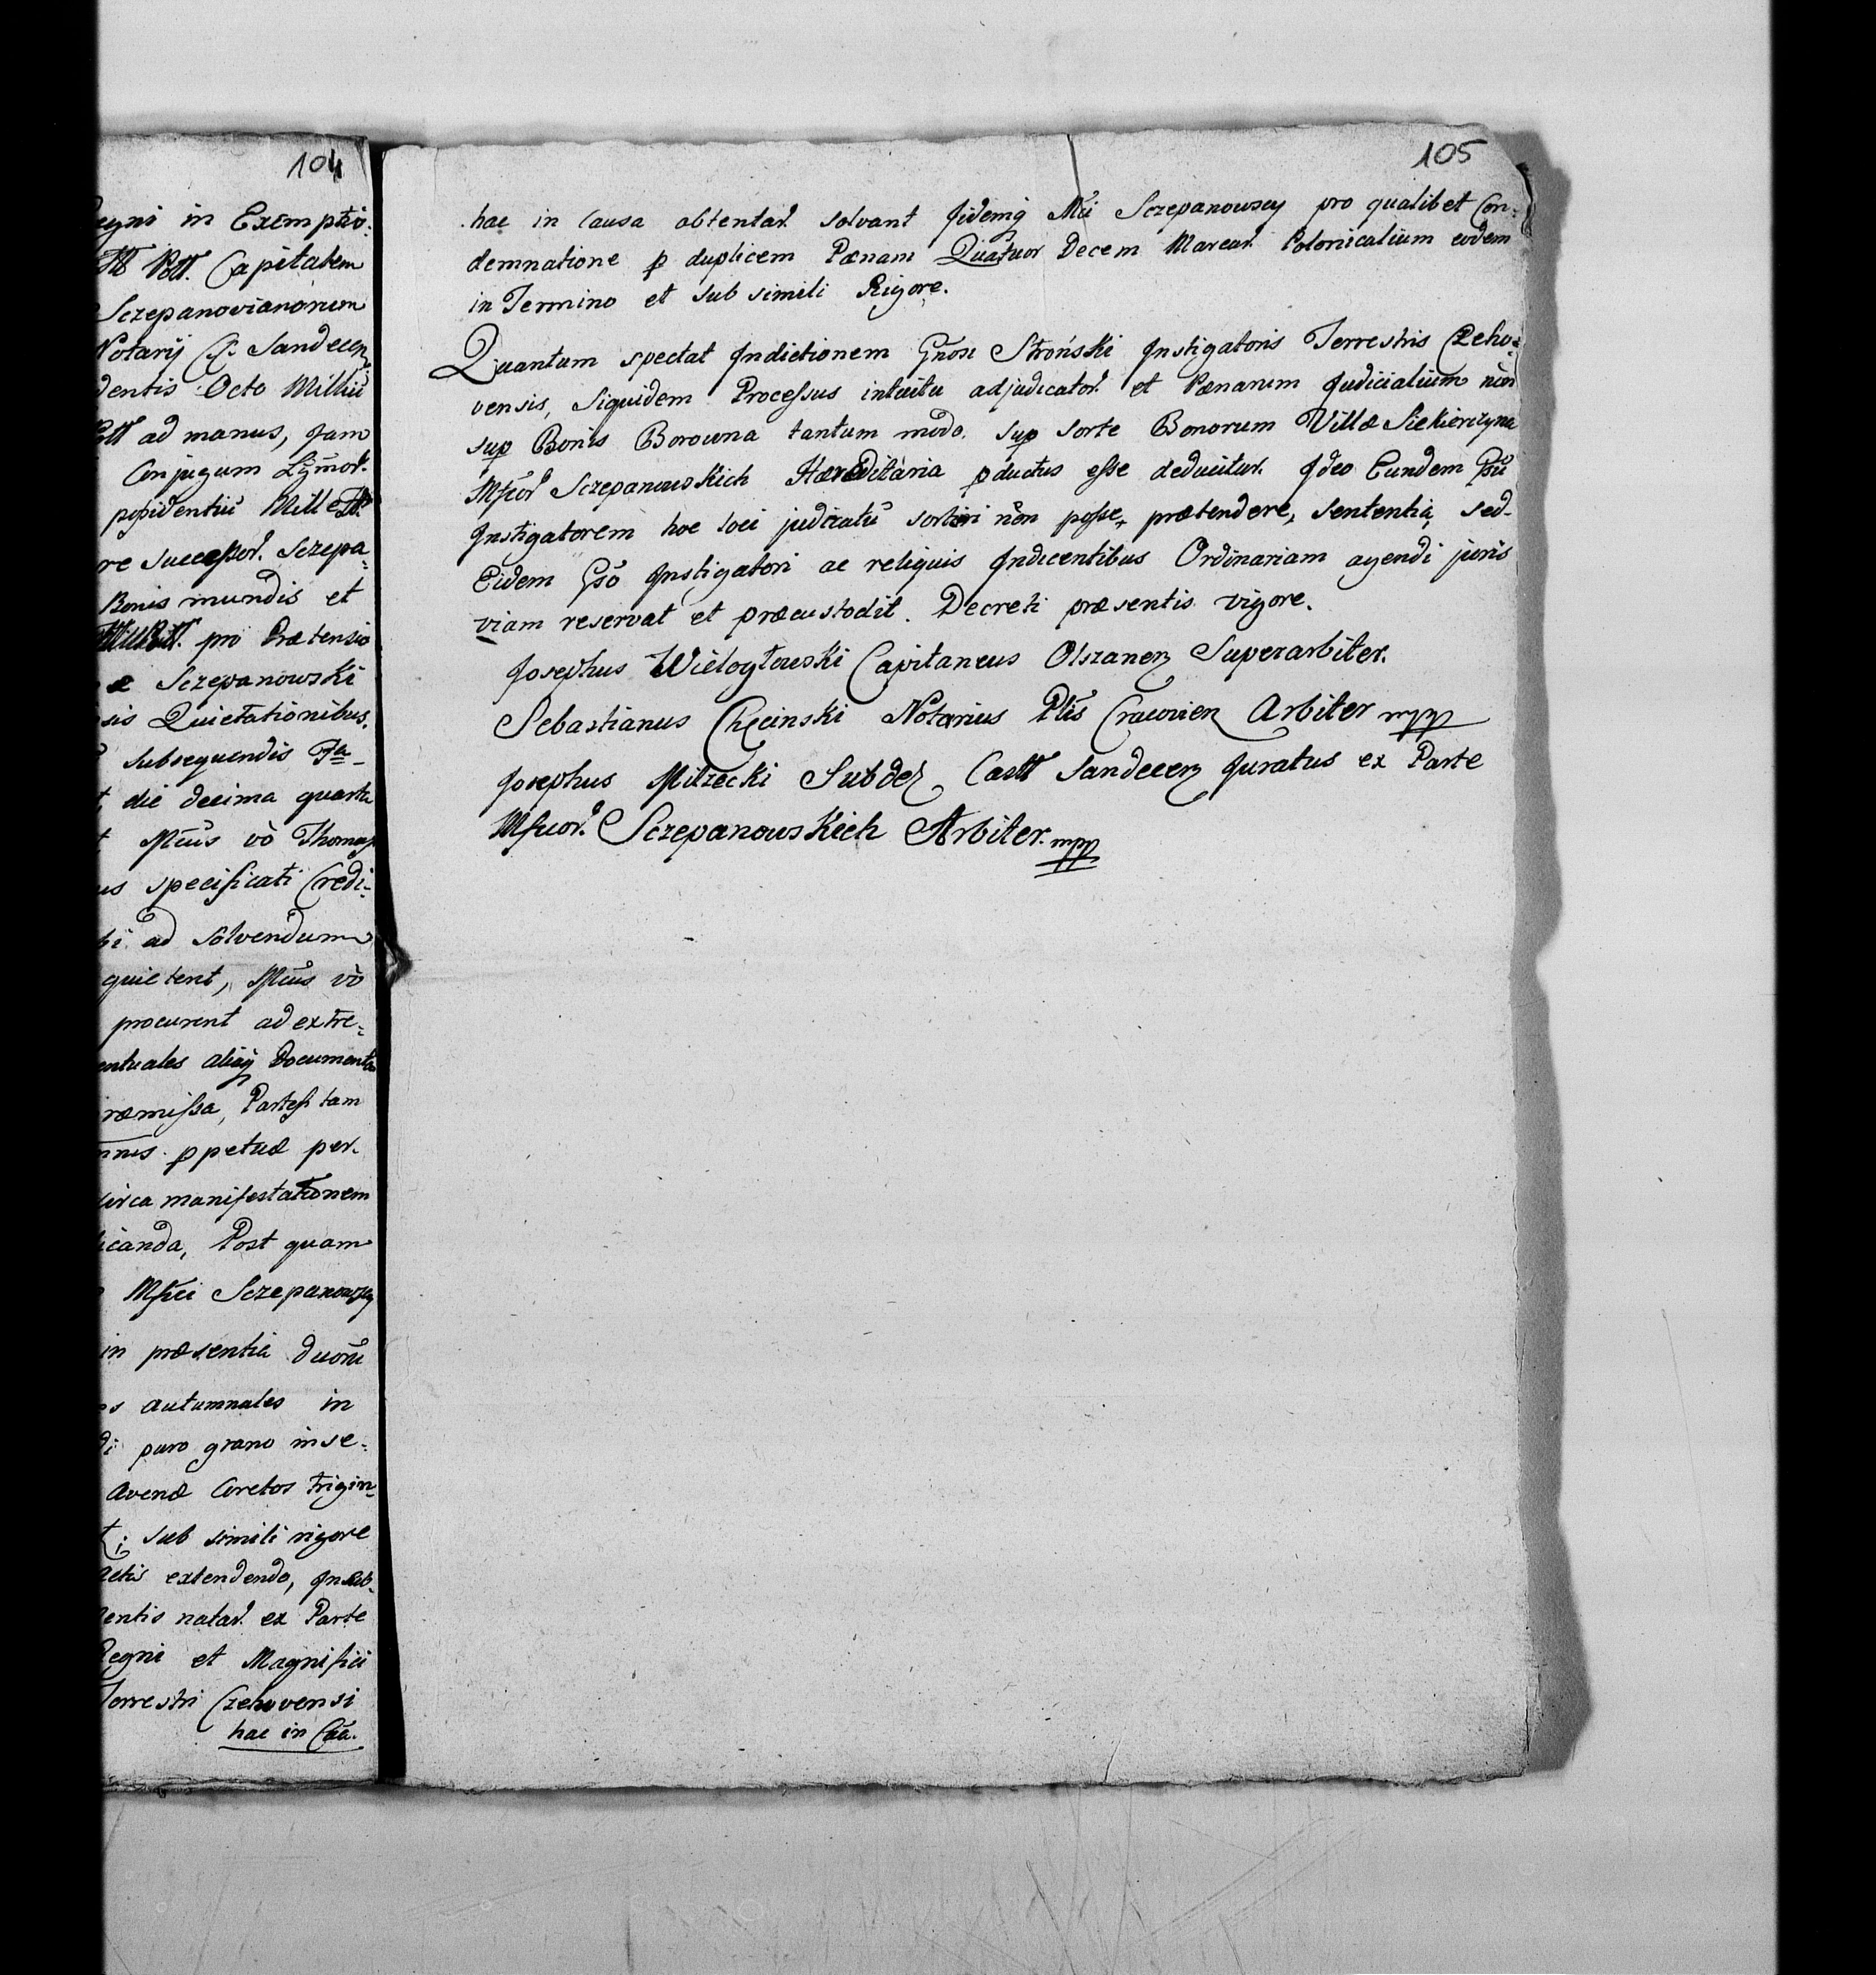 104
egni in Exemptio:
Ptt. Capitalem
Sczepanovianorum
Notarij C. Sandecen
dentis Octo Milliū
ad manus, Jam
Conjugum
possidentiū Mille
re successor. Sczepa=
Bonis mundis et
pro Prætensio
Sczepanowski
sis Quietationibus,
subsequendis Fa=
die decima quarta
Mcus vò Thomas
us specificati Credi=
bi ad solvendum
quietent, Mcus vò
procurent ad extre=
entuales aliasq Documenta
ræmissa, Partes tam
nnis ppetuæ per.
circa manifestationem
icanda, Post quam
Mfici Sczepanowscy
in præsentia duorū
os autumnales in
di puro grano inse=
avenæ Coretos trigin=
t; sub simili rigore
Actis extendendo, Insub=
entis natar. ex Parte
Regni et Magnifici
Terrestri Czchovensi
hac in Cāa.
105
hac in Causa obtentar. solvant Jidemq Mci Sczepanowscy pro qualibet Con=
demnatione p duplicem Pænam Quatuor Decem Marcar. Polonicalium eodem
in Termino et sub simili Rigore.
Quantum spectat Indictionem Gnosi Stroński Instigatoris Terrestris Czcho=
vensis, Siquidem Processus intuitu adjudicator. et Pænarum Judicialium non
sup Bonis Borowna tantum modo. sup sorte Bonorum Villæ Siekierczyna
Mficor. Sczepanowskich Hæreditaria pductus esse deducitur. Ideo Eundem Gsū
Instigatorem hoc loci judicatū sortiri non posse, prætendere, sententiā, sed
Eidem Gsō Instigatori ac reliquis Indicentibus Ordinariam agendi juris
viam reservat et præcustodit. Decreti præsentis vigore.
Josephus Wielogłowski Capitaneus Olszanen Superarbiter.
Sebastianus Chęcinski Notarius Pltis Cracovien Arbiter mpp
Josephus Milzecki Subdel. Castr Sandecen Juratus ex Parte
Mficor. Sczepanowskich Arbiter. mpp